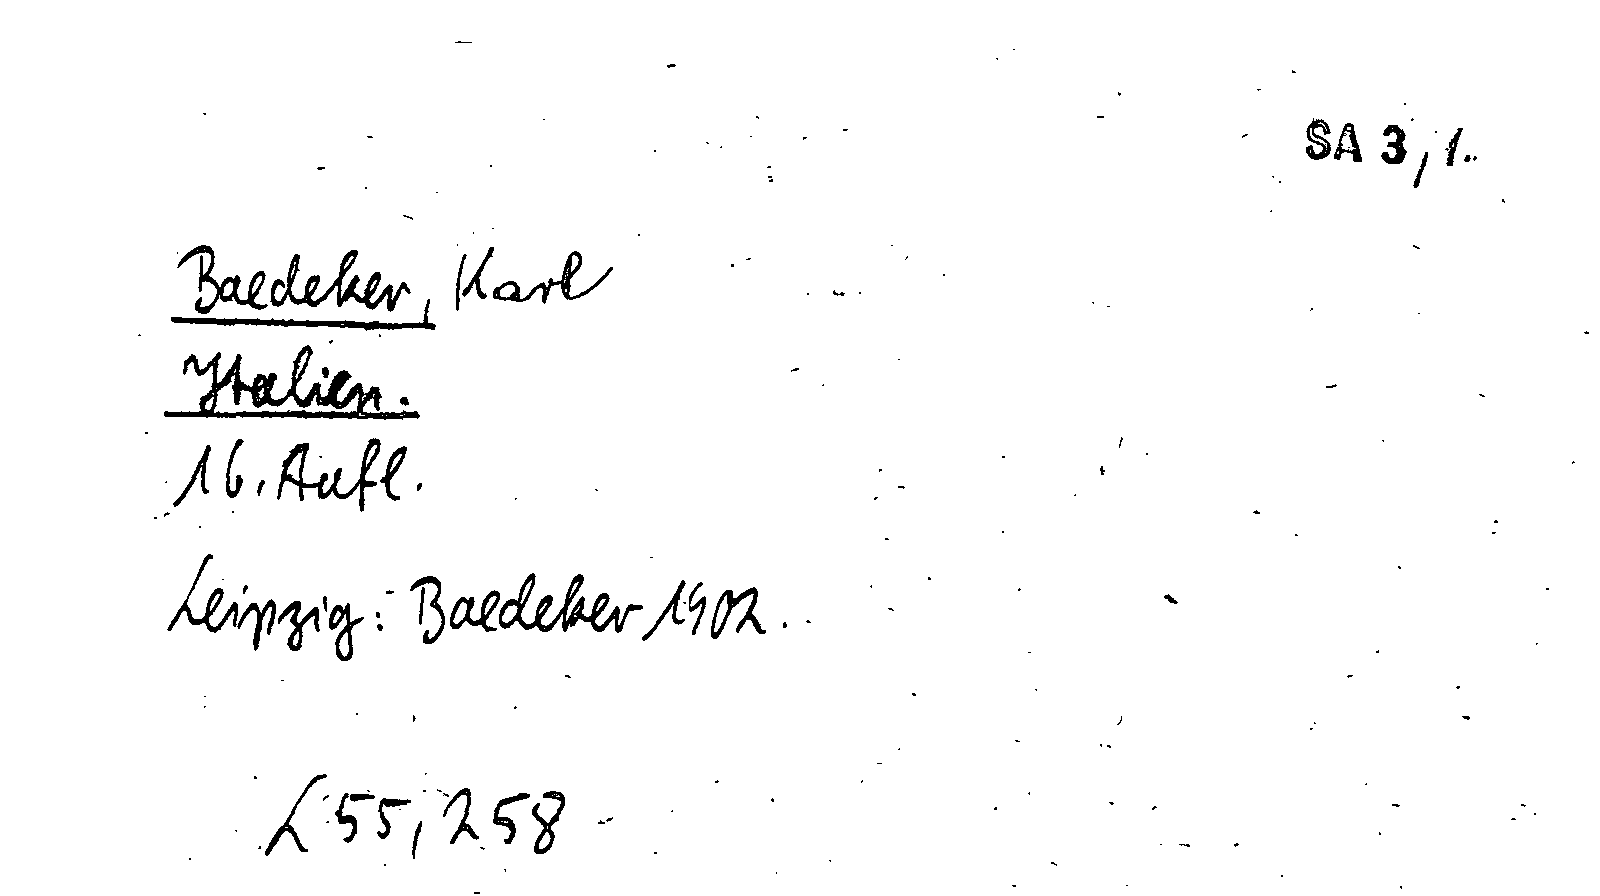 SA 3,1.
Baedeker, Karl
Italien.
16. Aufl.
Leipzig: Baedeker 1902.
L 55, 258